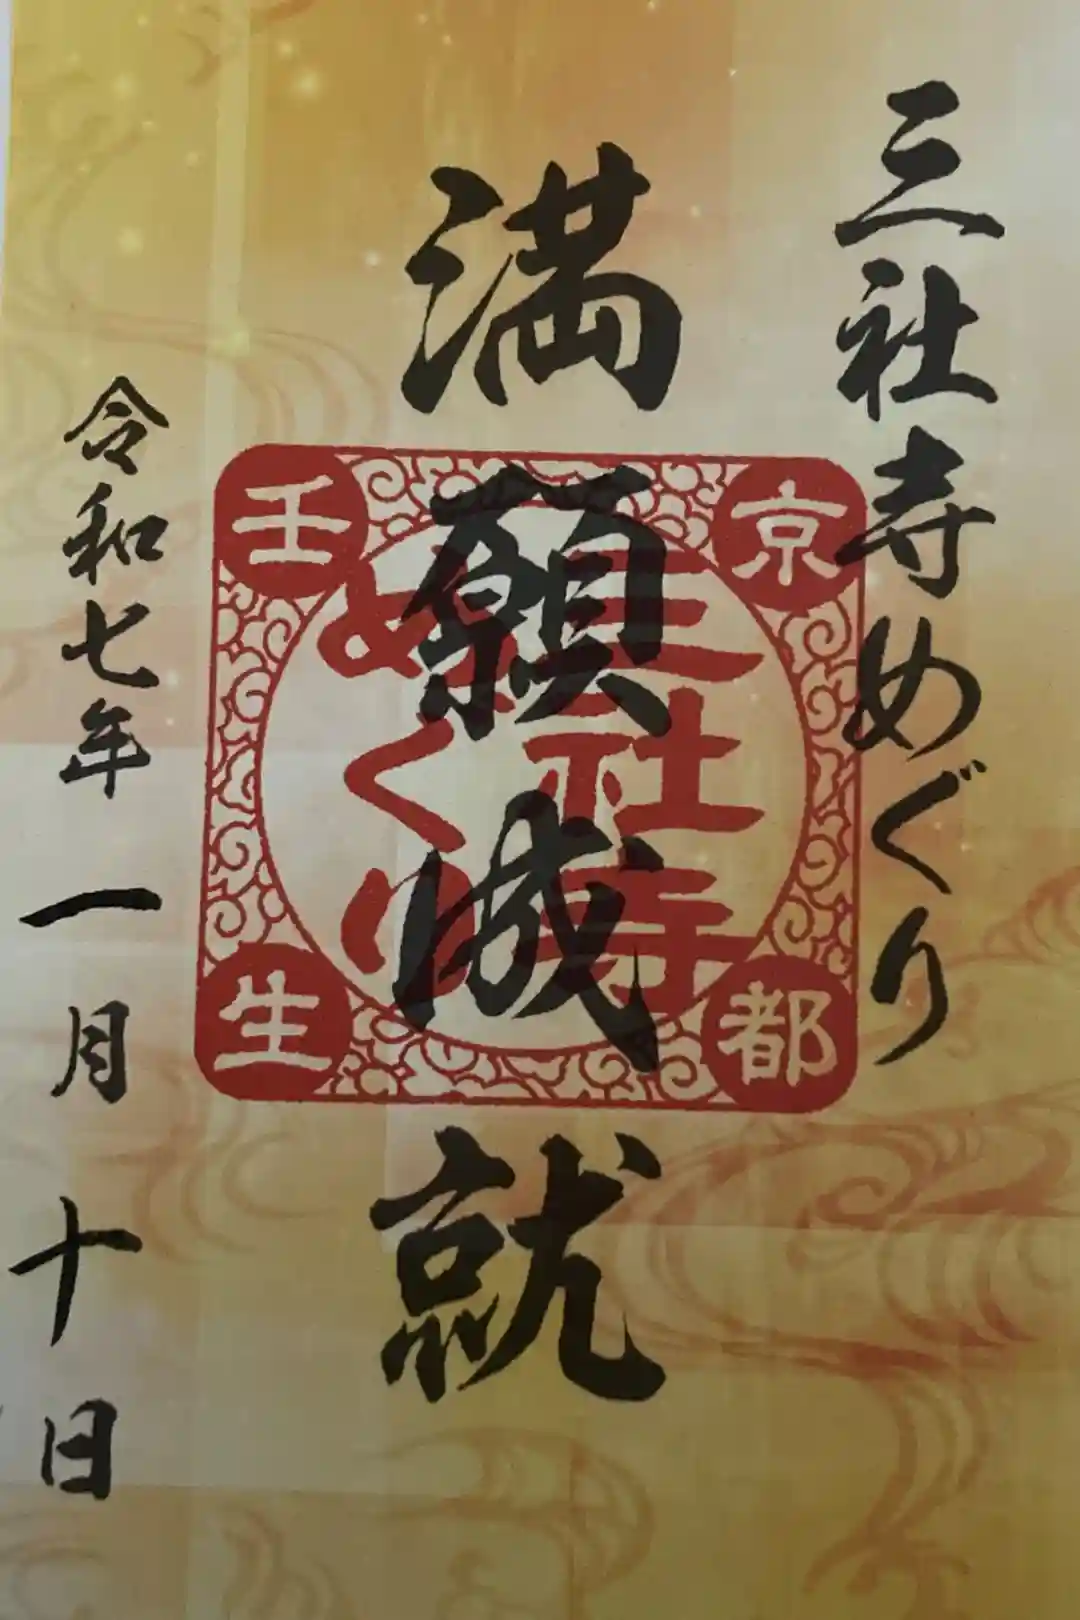 三社寺めぐり
満願成就
令和七年一月十日
京都
壬生
三社寺
めぐり